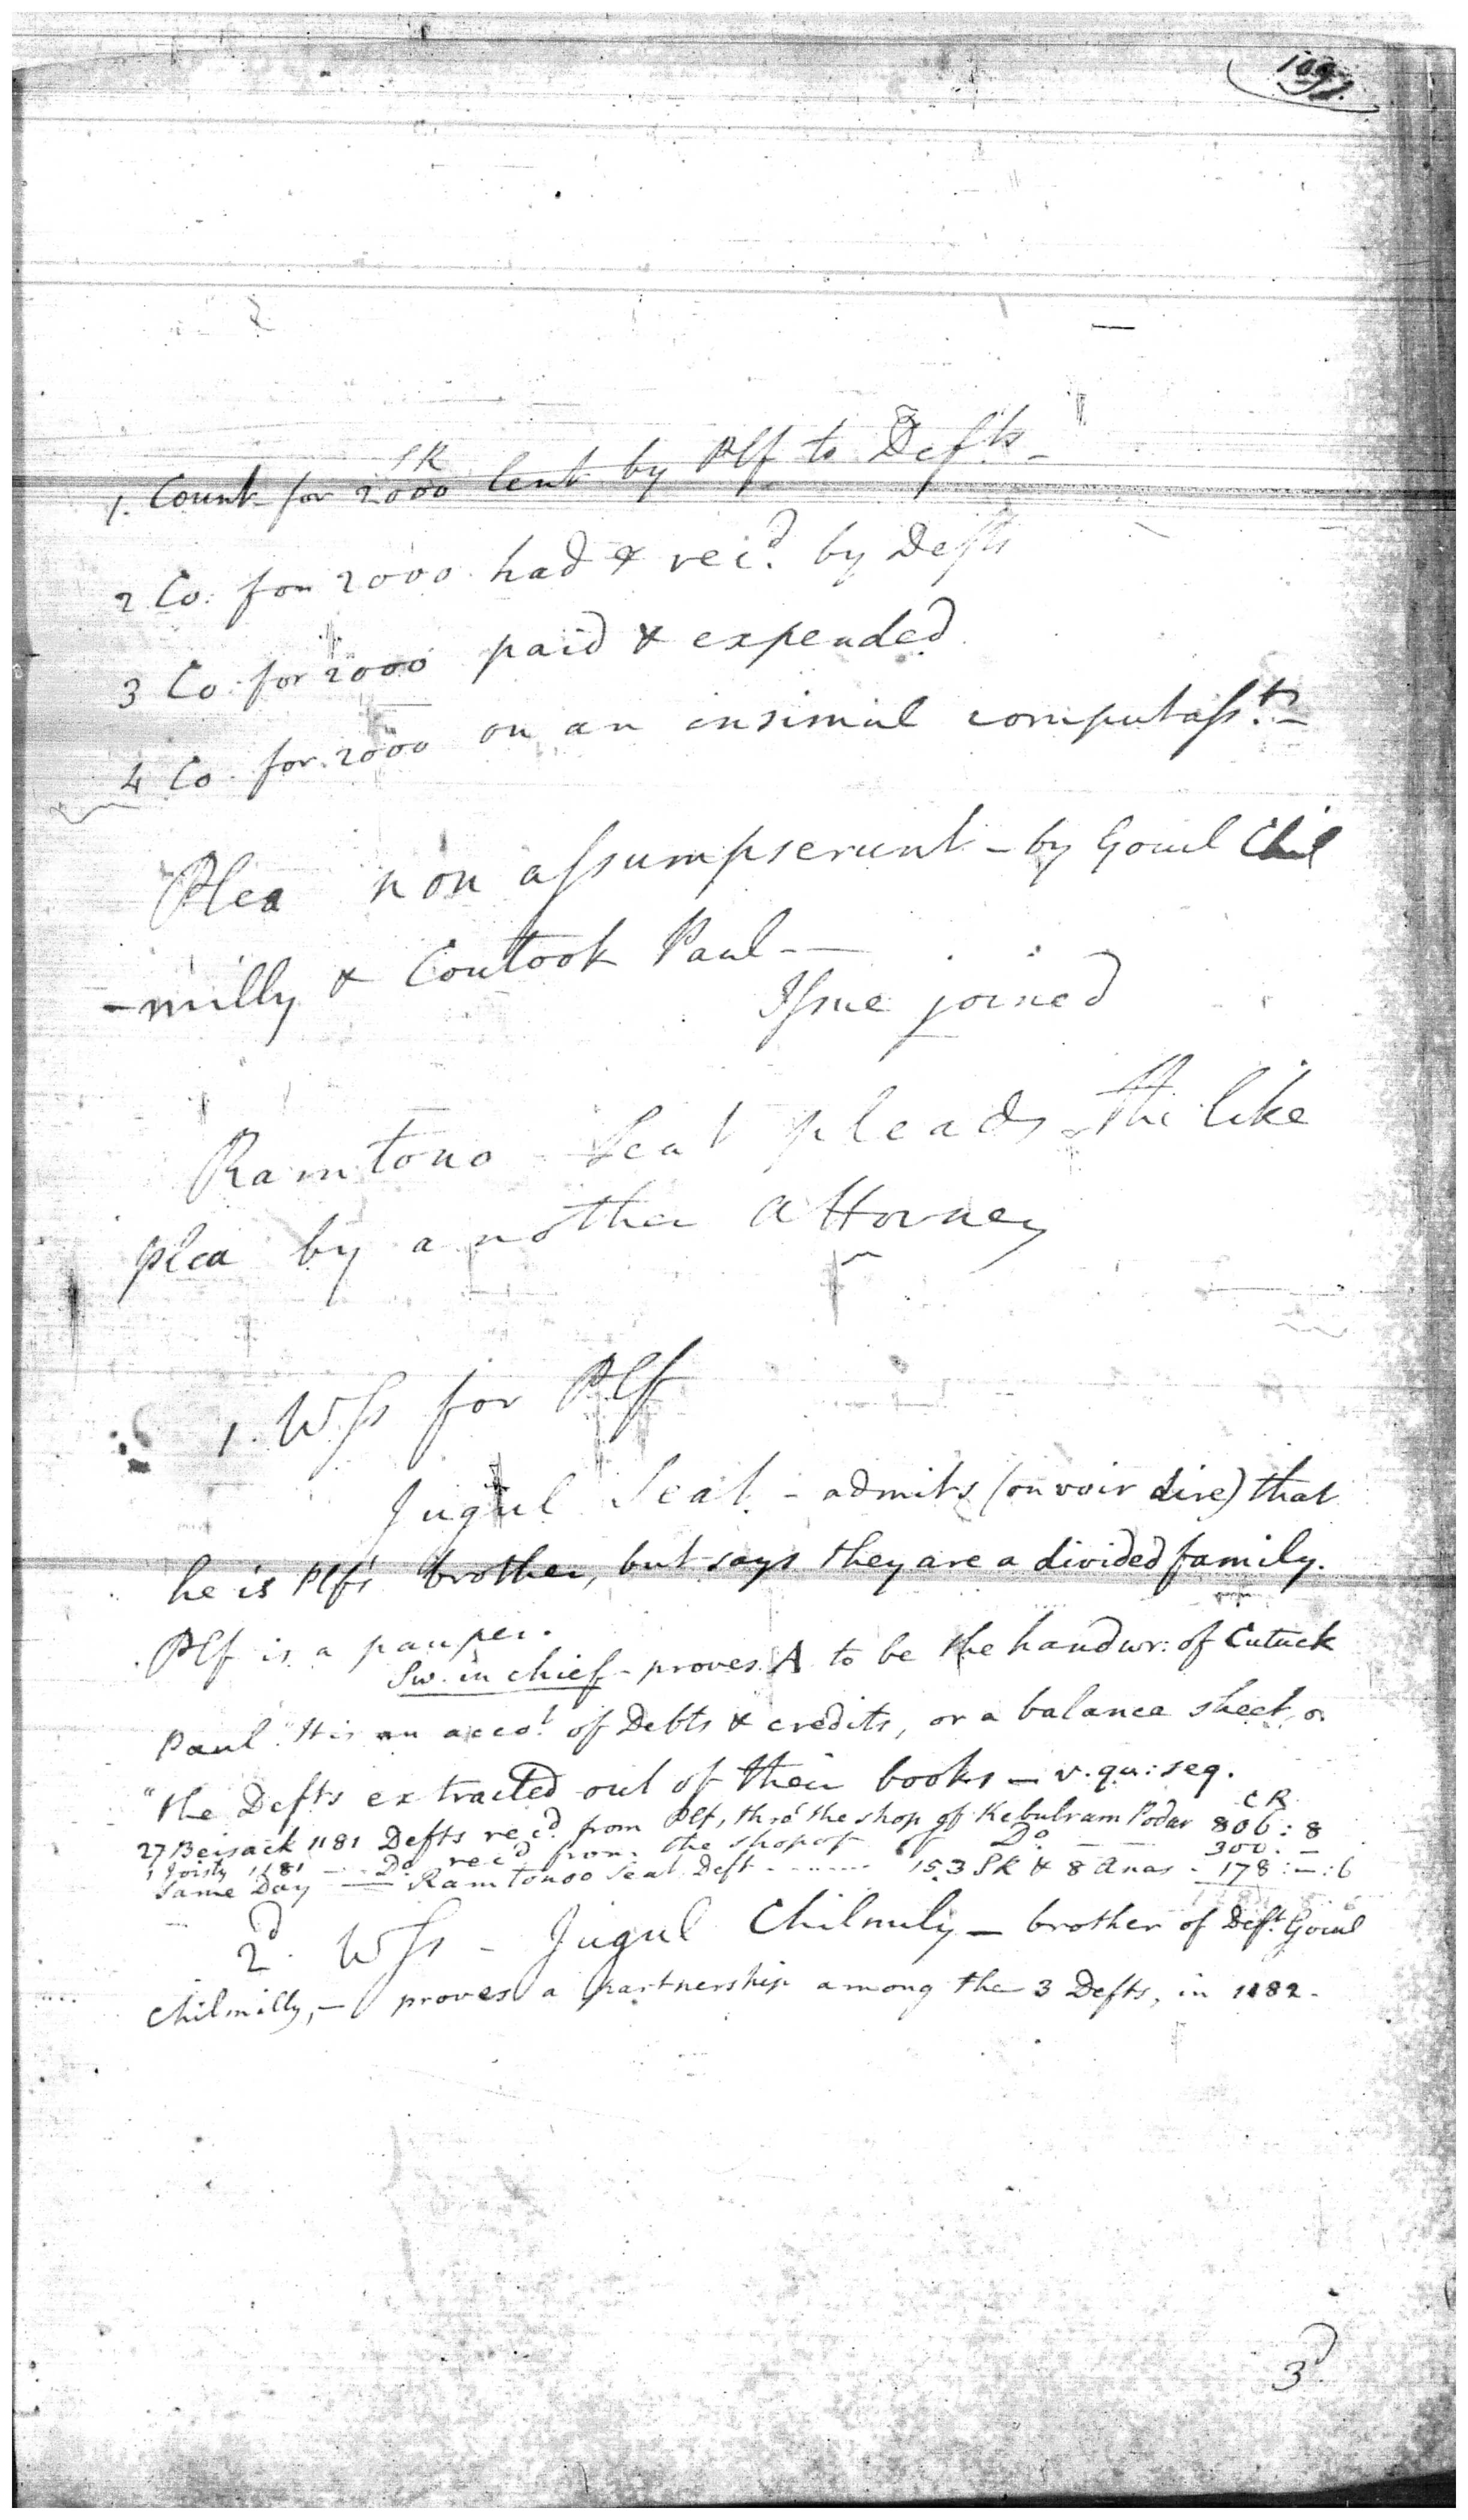 SR
1. Count for 2000 lent by Plf to Defts -
2 Co: for 2000 had & rec.d by Defts
3 Co: for 2000 paid & expended
4 Co. for 2000 on an insimul computass.t -
Plea non assumpserunt - by Gocul Chil
-milly & Coutook Paul - —
Issue joined
Ramtono Seat pleads the like
plea by another Attorney
1. Wss for Plf
Jugul Seat - admits (on voir dire) that
he is Plf's brother, but says they are a divided family.
Plf is a pauper.
Sw. in chief - proves A to be the handwr: of Cutuck
Paul "It is an acco.t of Debts & credits, or a balance sheet, o
"the Defts extracted out of their books — v. qu: seq.
CR
27 Beisack 1181 Defts rec.d from Plf, thro' the shop of Kebulram Podar 806 : 8
1 Joisty 1181 - - - D.o rec.d from the shop of D.o — — 300. —
Same Day — Ramtonoo Seat Deft - - - - - 153 SR & 8 Anas - 178 : — : 6
2.d Wss - Jugul Chilmily — brother of Deft Gocul
Chilmilly, — proves a partnership among the 3 Defts, in 1182 -
3.d